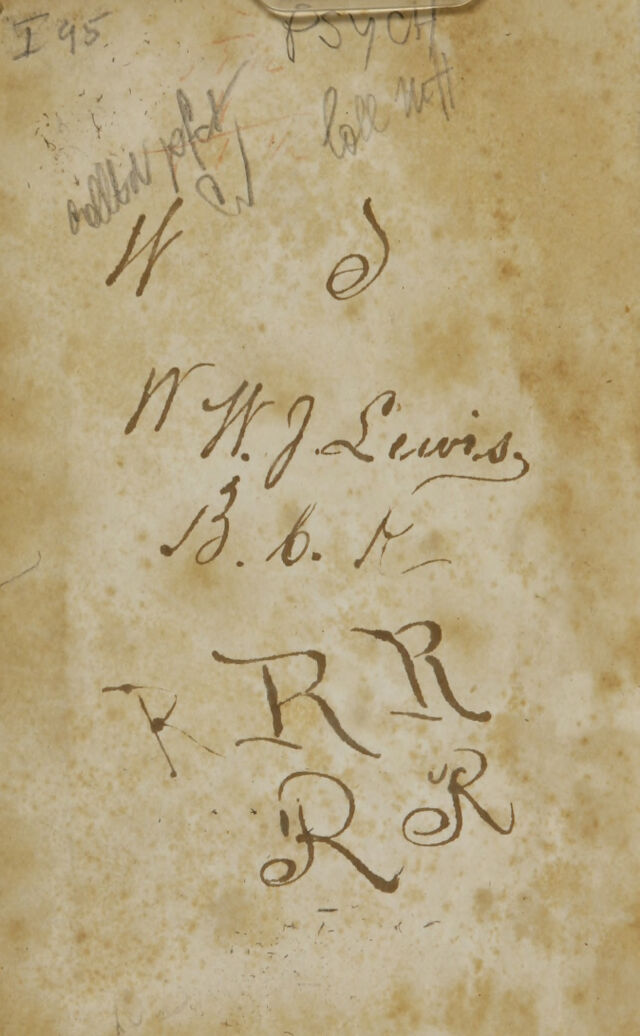 I 95 PSYCH
W J
W W. J. Lewis,
B. C.
R R R
R R